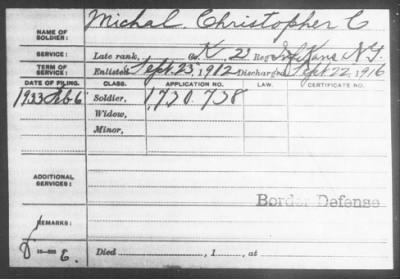 NAME OF SOLDIER: Michal, Christopher C
SERVICE: Late rank, Co. K, 2d Reg. Inf Kans N.G.
TERM OF SERVICE: Enlisted Sept. 23, 1912 Discharged Sept. 22, 1916
DATE OF FILING. CLASS. APPLICATION NO. LAW. CERTIFICATE NO.
1933 Feb 6 Soldier, 1,730,738
Widow,
Minor,
ADDITIONAL SERVICES:
Border Defense
REMARKS:
Died , 1 , at